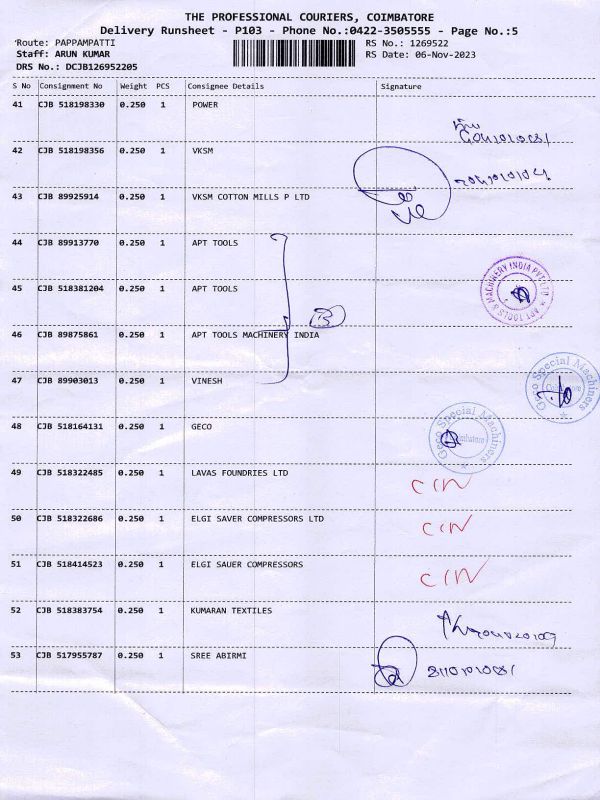 THE PROFESSIONAL COURIERS, COIMBATORE
Delivery Runsheet - P103 - Phone No.:0422-3505555 - Page No.:5
Route: PAPPAMPATTI RS No.: 1269522
Staff: ARUN KUMAR RS Date: 06-Nov-2023
DRS No.: DCJB126952205
S No Consignment No Weight PCS Consignee Details Signature
41 CJB 518198330 0.250 1 POWER
42 CJB 518198356 0.250 1 VKSM
43 CJB 89925914 0.250 1 VKSM COTTON MILLS P LTD
44 CJB 89913770 0.250 1 APT TOOLS
45 CJB 518381204 0.250 1 APT TOOLS
APT TOOLS & MACHINERY INDIA PVT LTD
46 CJB 89875861 0.250 1 APT TOOLS MACHINERY INDIA
47 CJB 89903013 0.250 1 VINESH
Geco Special Machiners
48 CJB 518164131 0.250 1 GECO
Geco Special Machiners Coimbatore
49 CJB 518322485 0.250 1 LAVAS FOUNDRIES LTD CIN
50 CJB 518322686 0.250 1 ELGI SAVER COMPRESSORS LTD CIN
51 CJB 518414523 0.250 1 ELGI SAUER COMPRESSORS CIN
52 CJB 518383754 0.250 1 KUMARAN TEXTILES
53 CJB 517955787 0.250 1 SREE ABIRMI